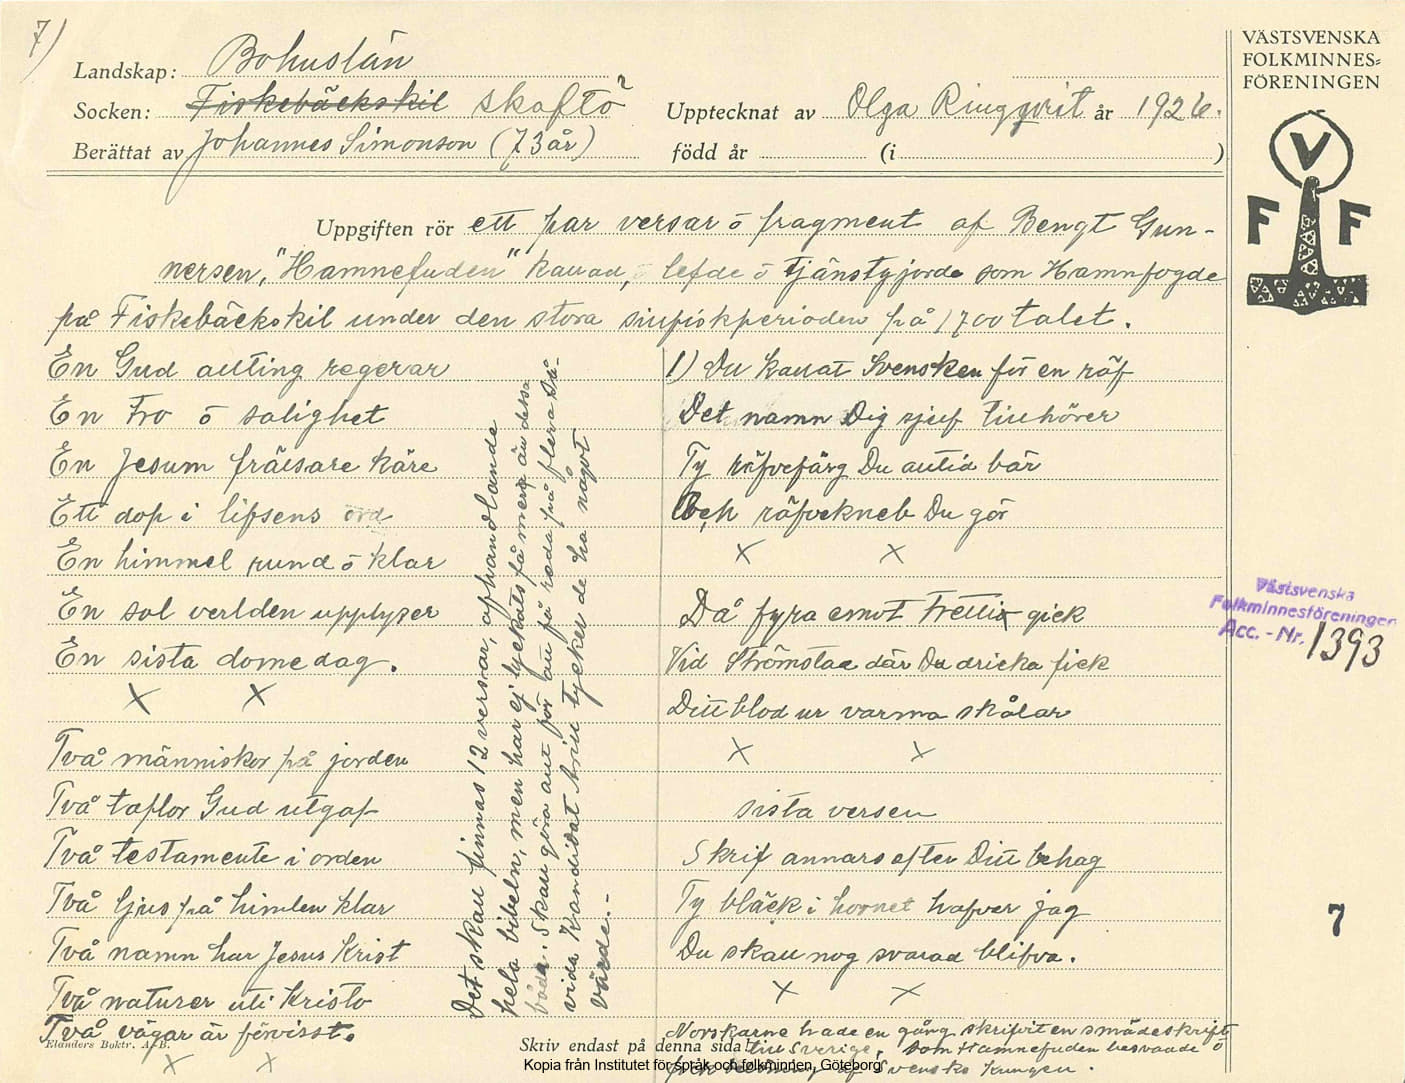 7)
VÄSTSVENSKA
FOLKMINNES=
FÖRENINGEN
V
F F
Landskap: Bohuslän
Socken: Fiskebäckskil Skaftö?
Upptecknat av Olga Ringqvist år 1926.
Berättat av Johannes Simonson (73 år)
född år (i )
Uppgiften rör ett par versar ō fragment af Bengt Gun-
nersen, "Hamnefuden" kallad, ō lefde ō tjänstgjorde som Hamnfogde
på Fiskebäckskil under den stora sillfiskperioden på 1700 talet.
En Gud allting regerar
En Tro ō salighet
En Jesum frälsare käre
Ett dop i lifsens ord
En himmel rund ō klar
En sol verlden upplyser
En sista domedag.
X X
Två människor på jorden
Två taflor Gud utgaf
Två testamente i orden
Två ljus på himlen klar
Två namn har Jesus Krist
Två naturer uti Kristo
Två vägar är förvisst.
X X
Det skall finnas 12 versar, afhandlande
hela bibeln, men har ej lyckats få mera än dessa
båda. Skall göra allt för att få reda på flera så-
vida Kandidat Arill tycker de ha något
värde.-
1) Du kallat Svensken för en räf
Det namn Dig sjelf tillhörer
Ty räfvefärg Du alltid bär
Och räfvekneb Du gör
X X
Då fyra emot trettio gick
Vid Strömstad där Du dricka fick
Ditt blod ur varma skålar
X X
sista versen
Skrif annars efter Ditt behag
Ty bläck i hornet hafver jag
Du skall nog svarad blifva.
X X
Norskarne hade en gång skrifvit en smädeskrift
till Sverige, som Hamnefuden besvarade ō
fick af Svenska Kungen.
Elanders Boktr. A.-B.
Skriv endast på denna sida!
Västsvenska
Folkminnesföreningen
Acc.-Nr. 1393
7
Kopia från Institutet för språk och folkminnen, Göteborg